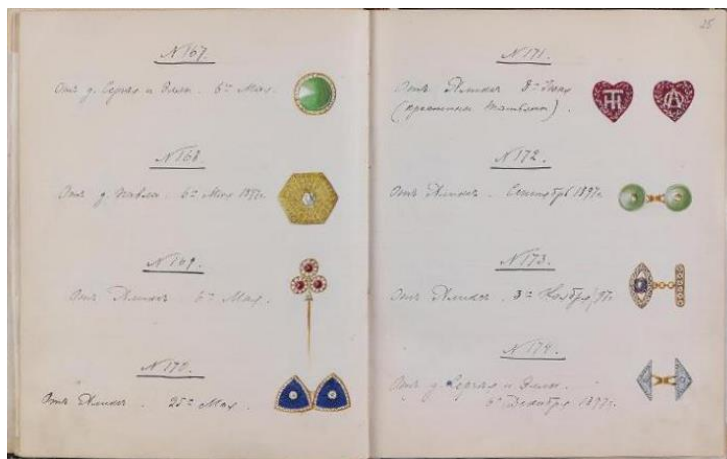 N 167.
Отъ д. Сергѣя и Эллы. 6го Мая.
N 168
Отъ д. Павла. 6го Мая 1897г.
N 169.
Отъ Аликсъ 6го Мая.
N 170.
Отъ Аликсъ. 25го Мая.
N 171.
Отъ Аликсъ
(крестины Татьяны).
N 172.
Отъ Аликсъ. Сентябрь 1897г.
N 173.
Отъ Аликсъ 3го Ноября/97г.
N 174.
Отъ д. Сергѣя и Эллы.
6го Декабря 1897г.